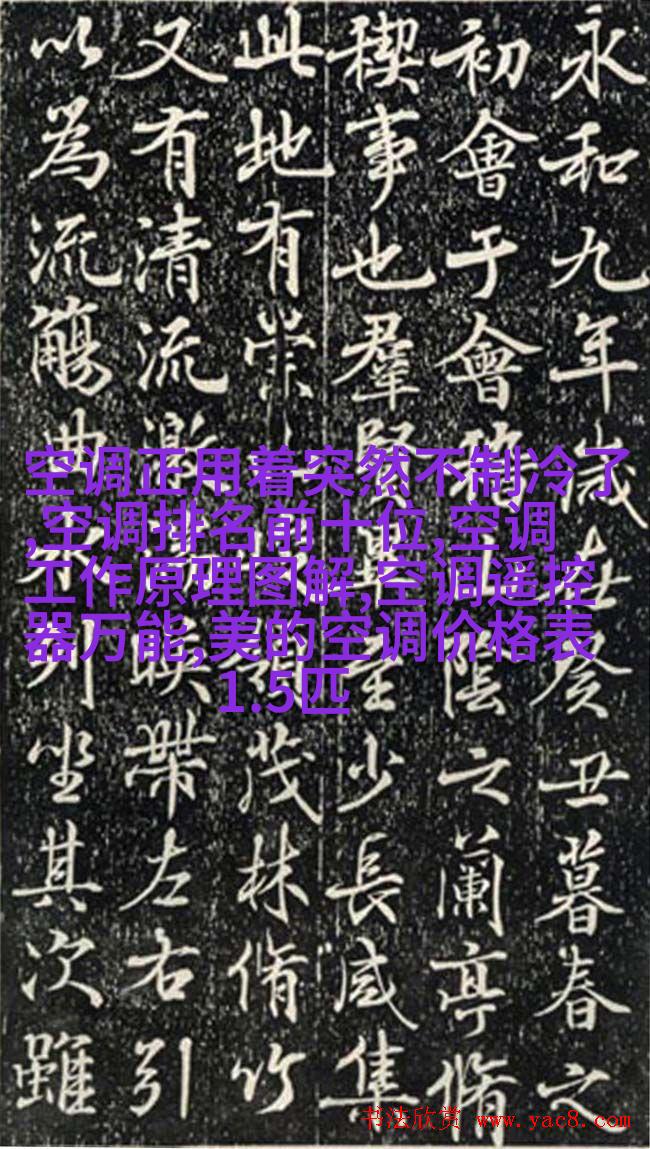 永和九年歲在癸丑暮春之
初會于會稽陰之蘭亭脩
稧事也羣賢至少長咸集
此地有崇茂林脩竹
又有清流激暎帶左右引
以為流觴曲水列坐其次雖
空调正用着突然不制冷了
,空调排名前十位,空调
工作原理图解,空调遥控
器万能,美的空调价格表
1.5匹
书法欣赏 www.yac8.com